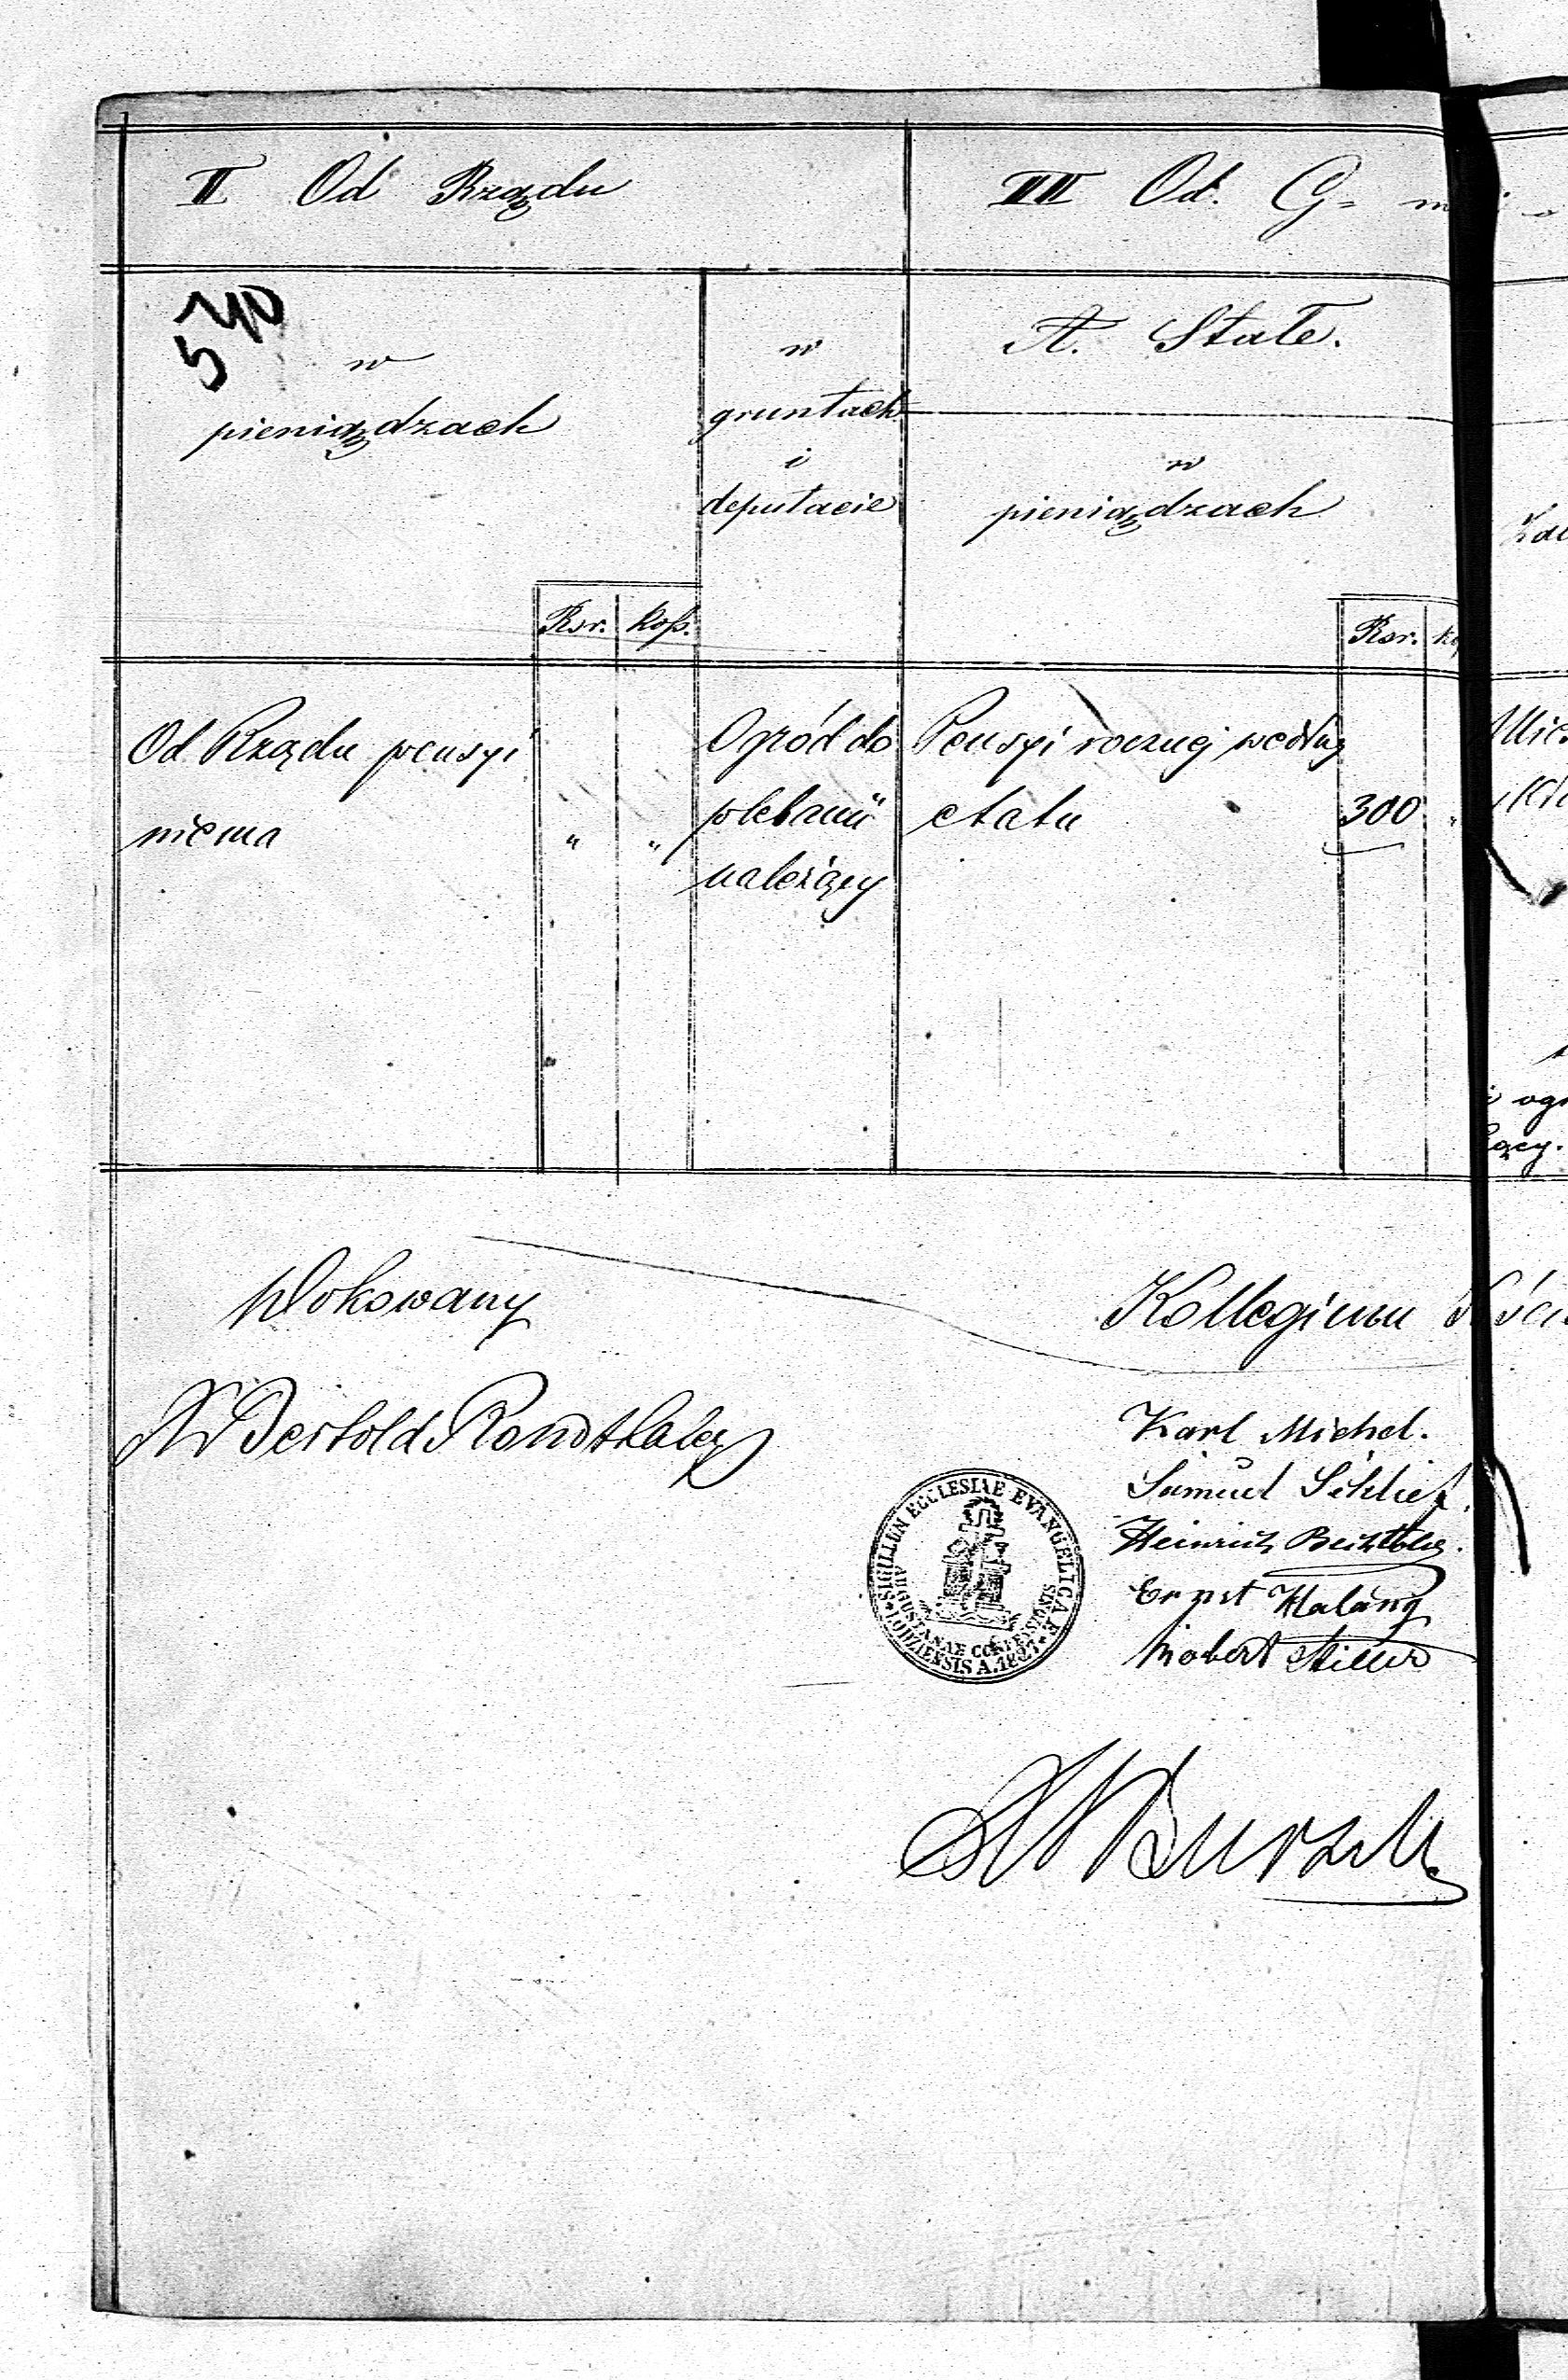 II Od Rządu
III Od. G=
540
w
pieniądzach
w
gruntach
i
deputacie
A. Stałe.
w
pieniądzach
Rsr. kop.
Rsr.
Od Rządu pensyi
niema
" "
Ogród do
plebanii
należący
Pensyi rocznej według
etatu
300 "
Wokowany
Bertold Rondthaler
Kollegium
Karl Michel.
Samuel Schlief.
Heinrich
Ernst
Robert
SIGILLUM ECCLESIAE EVANGELICAE
AUGUSTANAE CONFESSIONIS
LODZIENSIS A. 1827